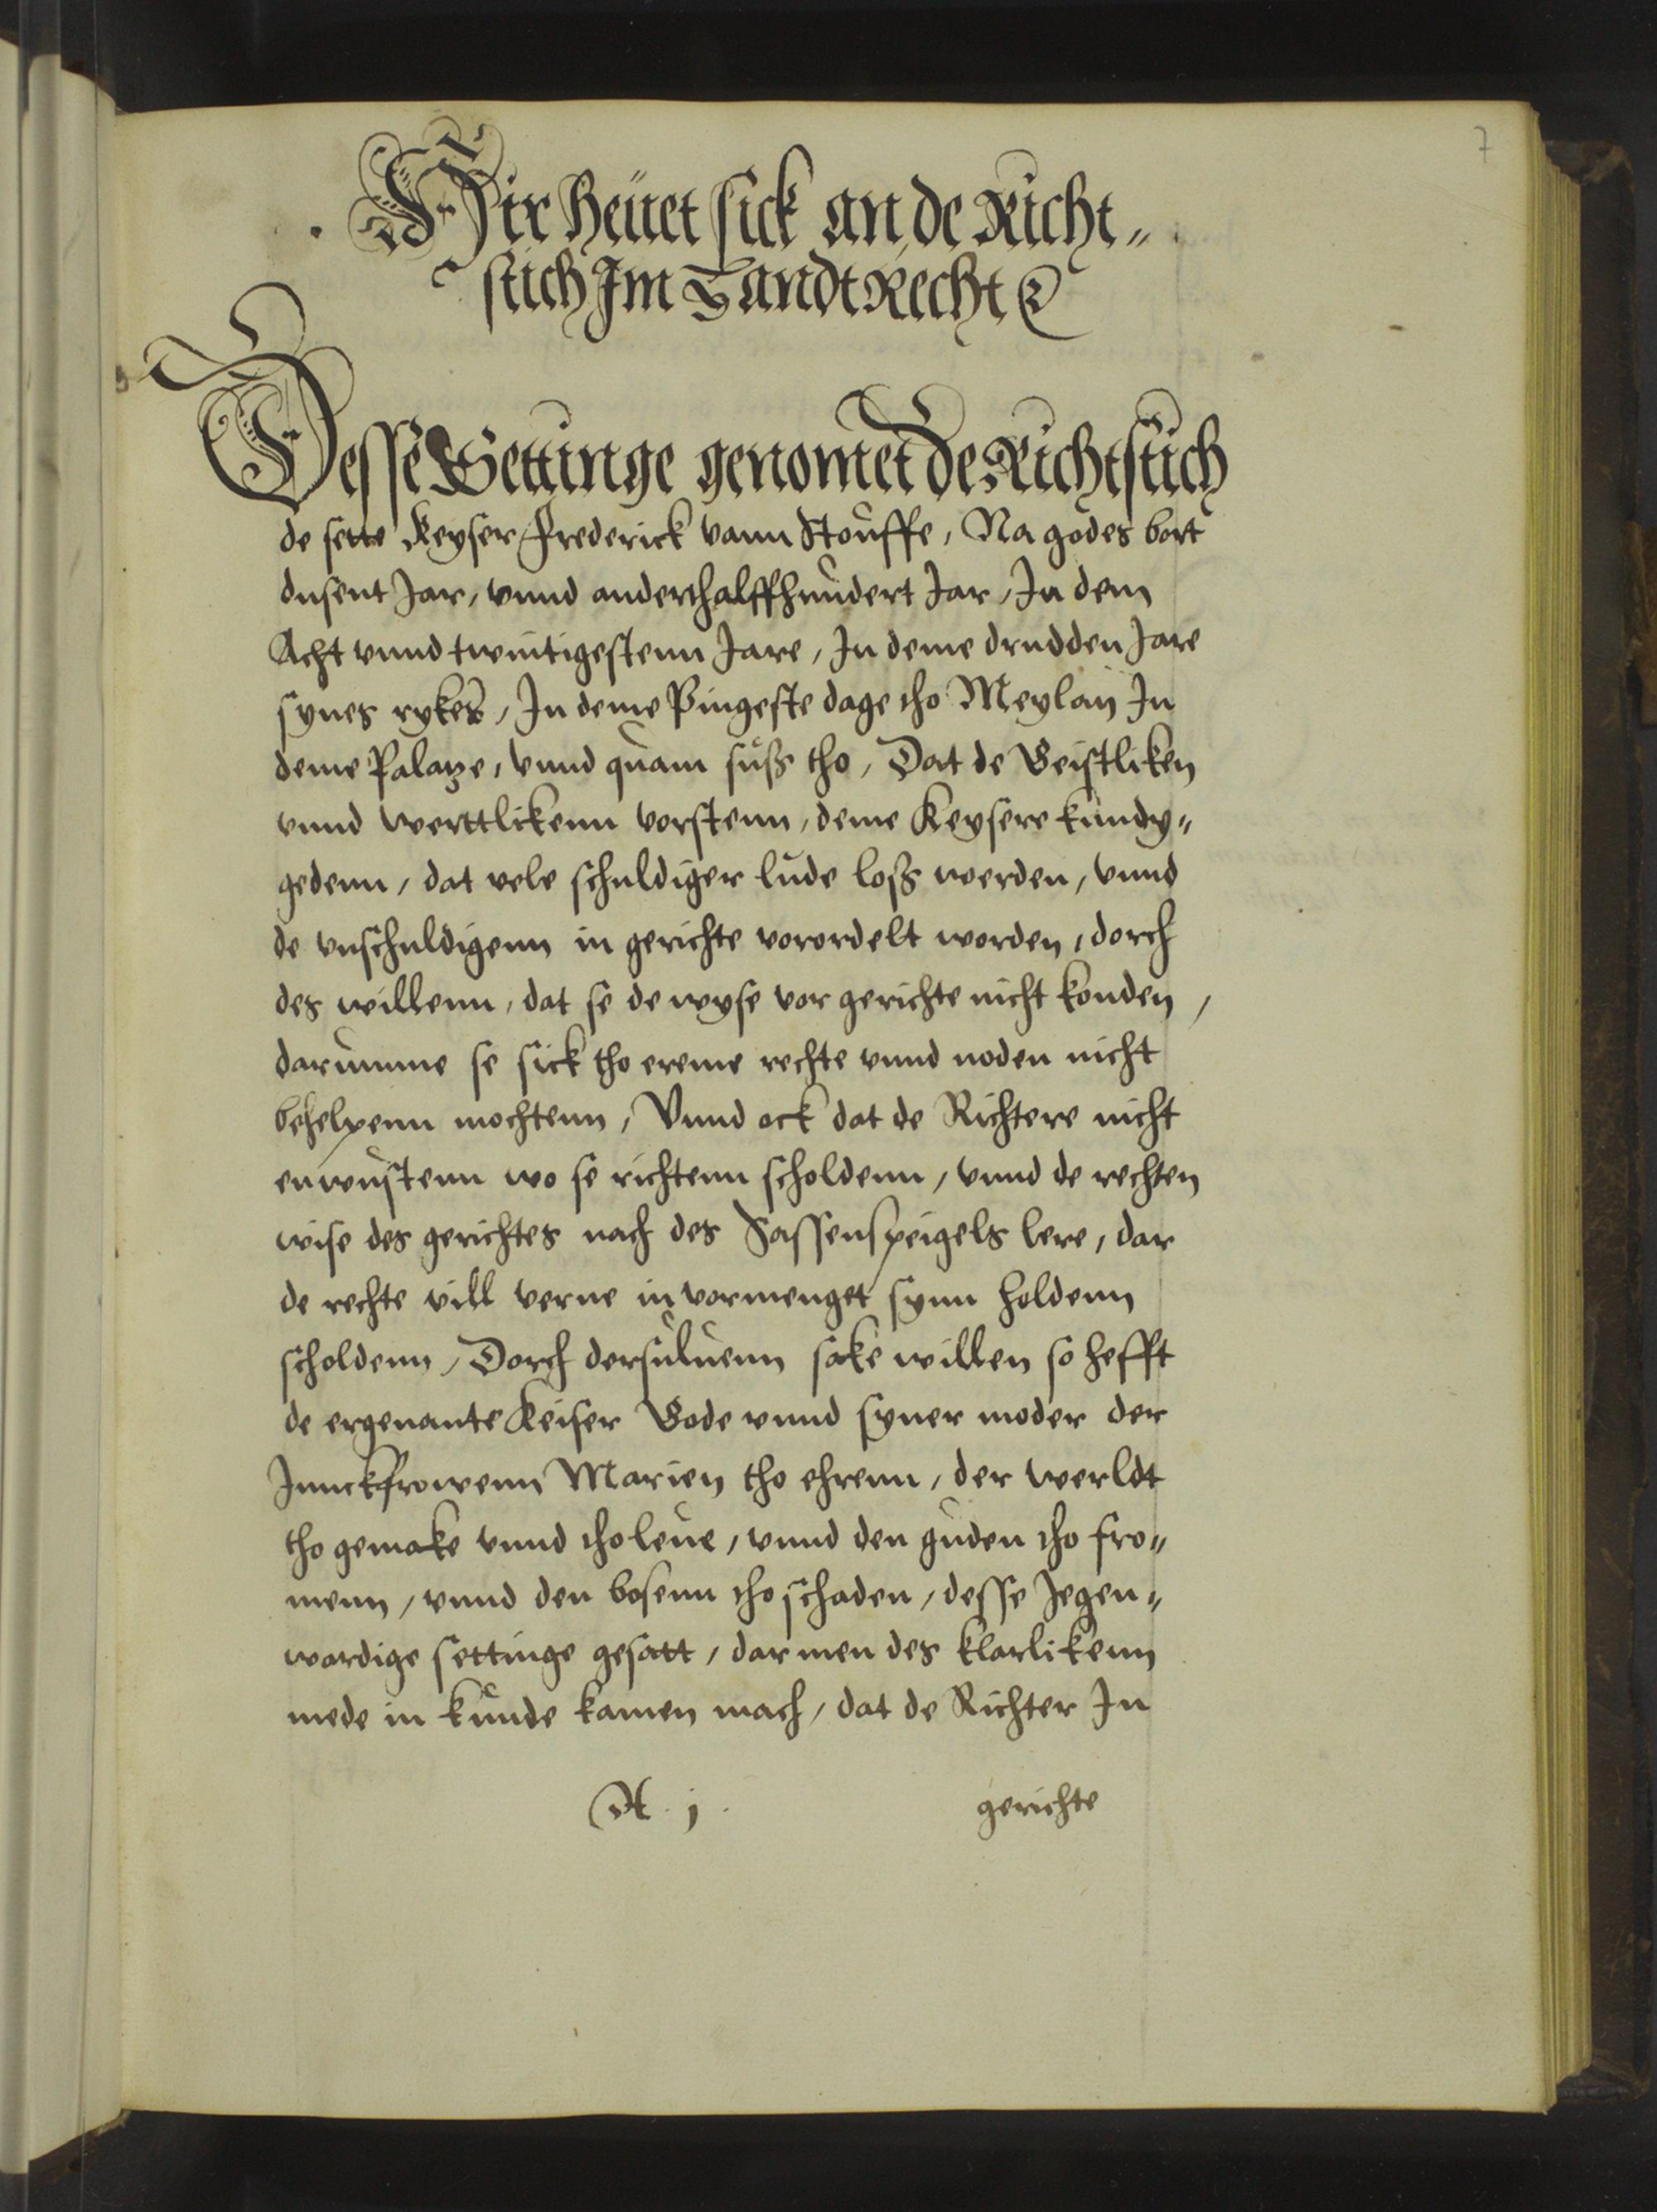 7
Hir heuet sick an de Richt„
stich Im Landt Recht
Desse Settinge genomet de Richtstich
de sette Keyser Frederick vann Stouffe, Na godes bort
dusent Jar, vnnd anderthalffhundert Jar, In dem
Acht vnnd twintigestenn Jare, In deme drudden Jare
synes rykes, In deme Pingeste dage tho Meylan In
deme Palatze, vnnd quam suß tho, Dat de Geistliken
vnnd werttlikenn vorstenn, deme Keysere kundy„
gedenn, dat vele schuldiger lude loß werden, vnnd
de vnschuldigenn in gerichte vorordelt worden, dorch
des willenn, dat se de wyse vor gerichte nicht konden,
darumme se sick tho ereme rechte vnnd noden nicht
behelpenn mochtenn, Vnnd ock dat de Richtere nicht
enwustenn wo se richtenn scholdenn, vnnd de rechten
wise des gerichtes nach des Sassenspeigels lere, dar
de rechte vill verne in vormenget synn holdenn
scholdenn, Dorch dersuluenn sake willen so hefft
de ergenante Keiser Gode vnnd syner moder der
Junckfrowenn Marien tho ehrenn, der werldt
tho gemake vnnd tho leue, vnnd den guden tho fro„
menn, vnnd den bosenn tho schaden, desse Jegen„
wardige settinge gesatt, dar men des klarlikenn
mede in kunde kamen mach, dat de Richter In
A. j.
gerichte